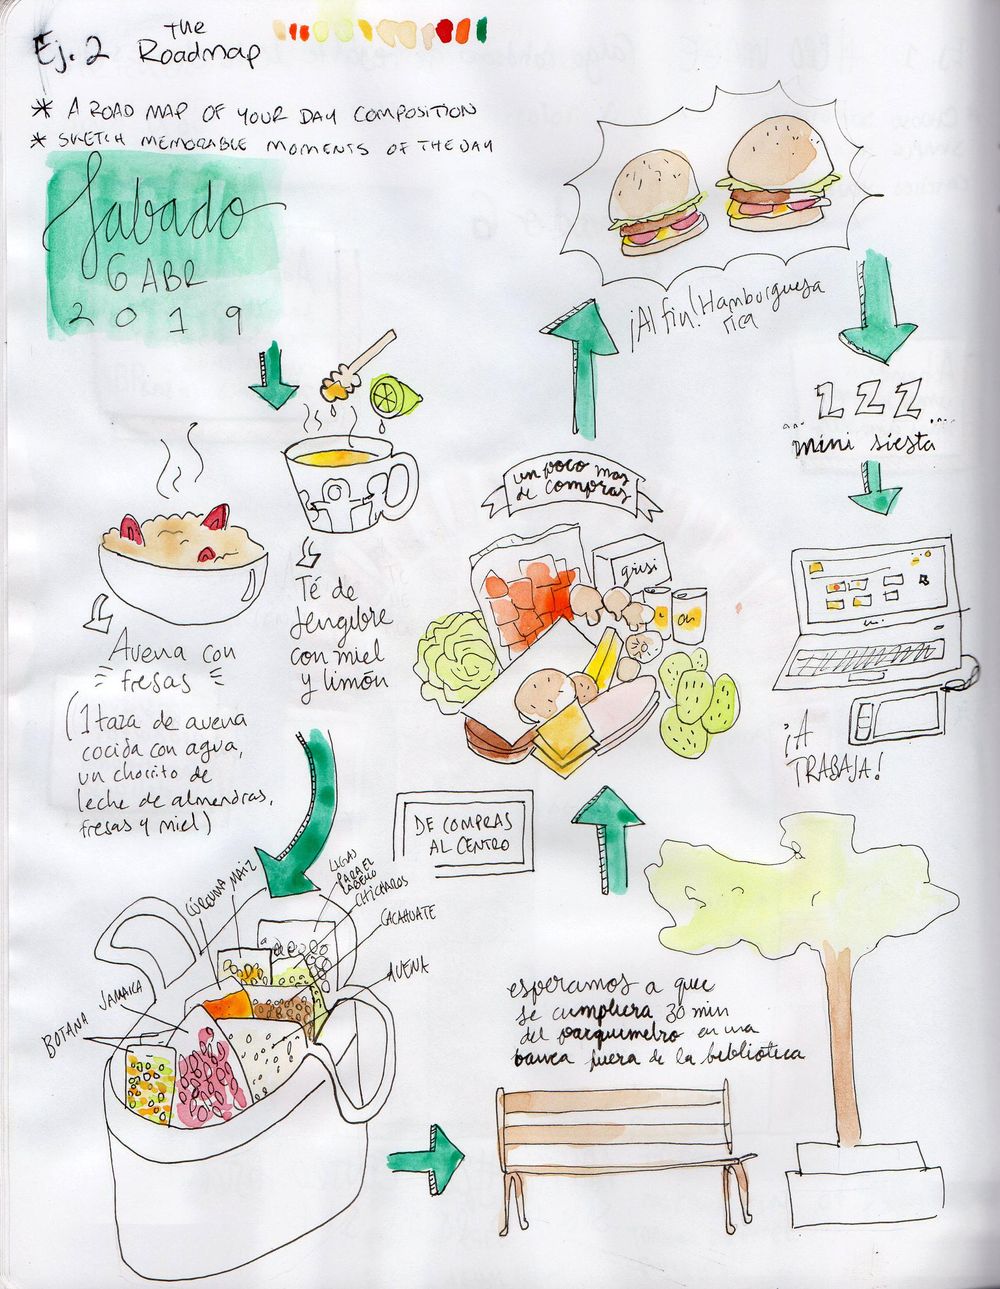 Ej. 2 the Roadmap
* A ROAD MAP OF YOUR DAY COMPOSITION
* SKETCH MEMORABLE MOMENTS OF THE DAY
Sabado
6 ABR
2019
Avena con
fresas
(1 taza de avena
cocida con agua,
un chorrito de
leche de almendras,
fresas y miel)
Té de
Jengibre
con miel
y limón
DE COMPRAS
AL CENTRO
BOTANA
JAMAICA
CÚRCUMA
MAIZ
LIGAS
PARA EL
CABELLO
CHÍCHAROS
CACAHUATE
AVENA
esperamos a que
se cumpliera 30 min
del parquimetro en una
banca fuera de la biblioteca
un poco mas
de compras
¡Al fin! Hamburguesa
rica
ZZZ
... mini siesta ...
¡A
TRABAJA!